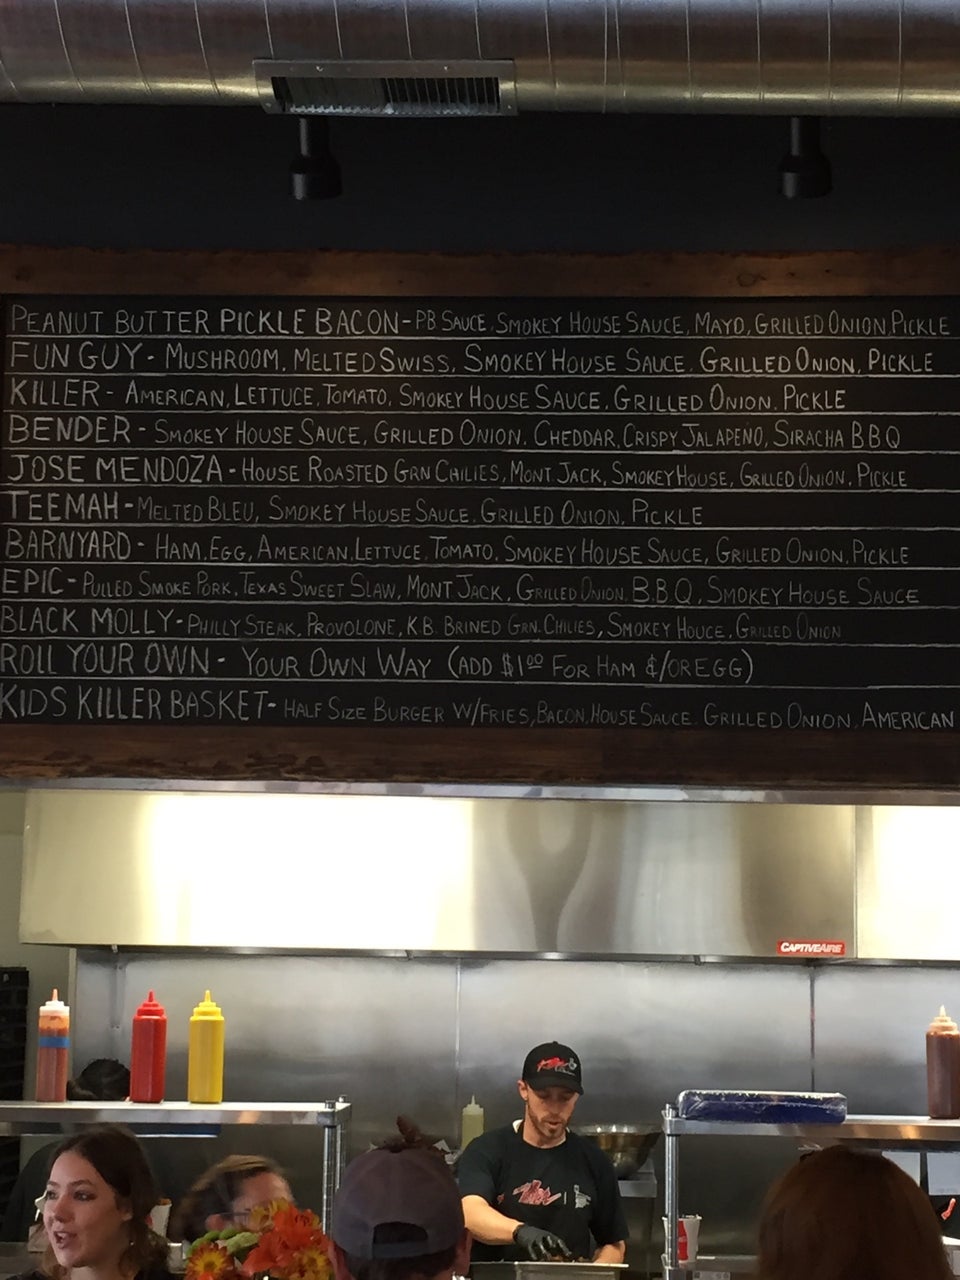 PEANUT BUTTER PICKLE BACON- P.B SAUCE, SMOKEY HOUSE SAUCE, MAYO, GRILLED ONION, PICKLE
FUN GUY - MUSHROOM, MELTED SWISS, SMOKEY HOUSE SAUCE, GRILLED ONION, PICKLE
KILLER - AMERICAN, LETTUCE, TOMATO, SMOKEY HOUSE SAUCE, GRILLED ONION, PICKLE
BENDER - SMOKEY HOUSE SAUCE, GRILLED ONION, CHEDDAR, CRISPY JALAPEÑO, SIRACHA BBQ
JOSE MENDOZA - HOUSE ROASTED GRN CHILIES, MONT JACK, SMOKEY HOUSE, GRILLED ONION, PICKLE
TEEMAH - MELTED BLEU, SMOKEY HOUSE SAUCE, GRILLED ONION, PICKLE
BARNYARD - HAM, EGG, AMERICAN, LETTUCE, TOMATO, SMOKEY HOUSE SAUCE, GRILLED ONION, PICKLE
EPIC - PULLED SMOKE PORK, TEXAS SWEET SLAW, MONT JACK, GRILLED ONION, B.B.Q, SMOKEY HOUSE SAUCE
BLACK MOLLY - PHILLY STEAK, PROVOLONE, K.B. BRINED GRN. CHILIES, SMOKEY HOUCE, GRILLED ONION
ROLL YOUR OWN - YOUR OWN WAY (ADD $1.00 FOR HAM &/OR EGG)
KIDS KILLER BASKET- HALF SIZE BURGER W/FRIES, BACON, HOUSE SAUCE, GRILLED ONION, AMERICAN
CAPTIVEAIRE